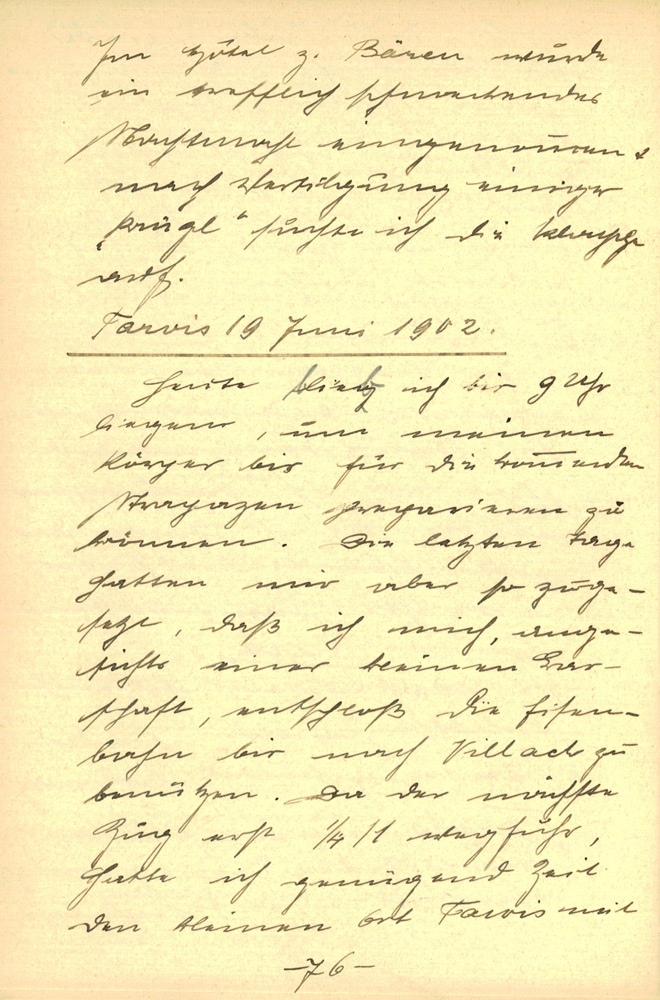 Im Hôtel z. Bären wurde
ein trefflich schmeckendes
Nachtmahl eingenommen &
nach Vertilgung einiger
„Krügl" suchte ich die Klappe
auf.
Tarvis 19 Juni 1902.
Heute blieb ich bis 9 Uhr
liegen, um meinen
Körper bis für die kommenden
Strapazen preparieren zu
können. Die letzten Tage
hatten mir aber so zuge-
setzt, daß ich mich, ange-
sichts einer kleinen Bar-
schaft, entschloß die Eisen-
bahn bis nach Villach zu
benützen. Da der nächste
Zug erst 1/4 11 wegfuhr,
hatte ich genügend Zeit
den kleinen Ort Tarvis mit
-76-